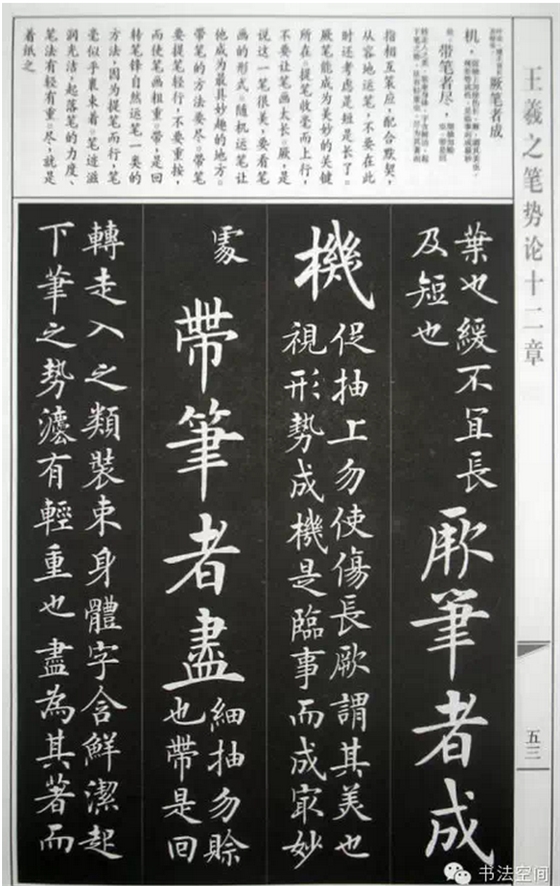 王羲之笔势论十二章
五三
厥笔者成
机，
处。带笔者尽，
指相互策应，配合默契，
从容地运笔，不要在此
时还考虑是短是长了。
厥笔能成为美妙的关键
所在。提笔收毫而上行，
不要让笔画太长。厥，是
说这一笔很美，要看笔
画的形式。随机运笔让
他成为最具妙趣的地方。
带笔的方法要尽。带笔
要提笔轻行，不要重按，
而使笔画粗重。带，是回
转笔锋自然运笔一类的
方法，因为提笔而行，笔
毫似乎裹束着。笔迹滋
润光洁，起落笔的力度、
笔法有轻有重。尽，就是
着纸之
葉也緩不宜長
及短也
厥筆者成
機
促抽上勿使傷長厥謂其美也
視形勢成機是臨事而成冣妙
處
帶筆者盡
細抽勿賒
也帶是回
轉走入之類裝束身體字含鮮潔起
下筆之勢瀍有輕重也盡為其著而
书法空间